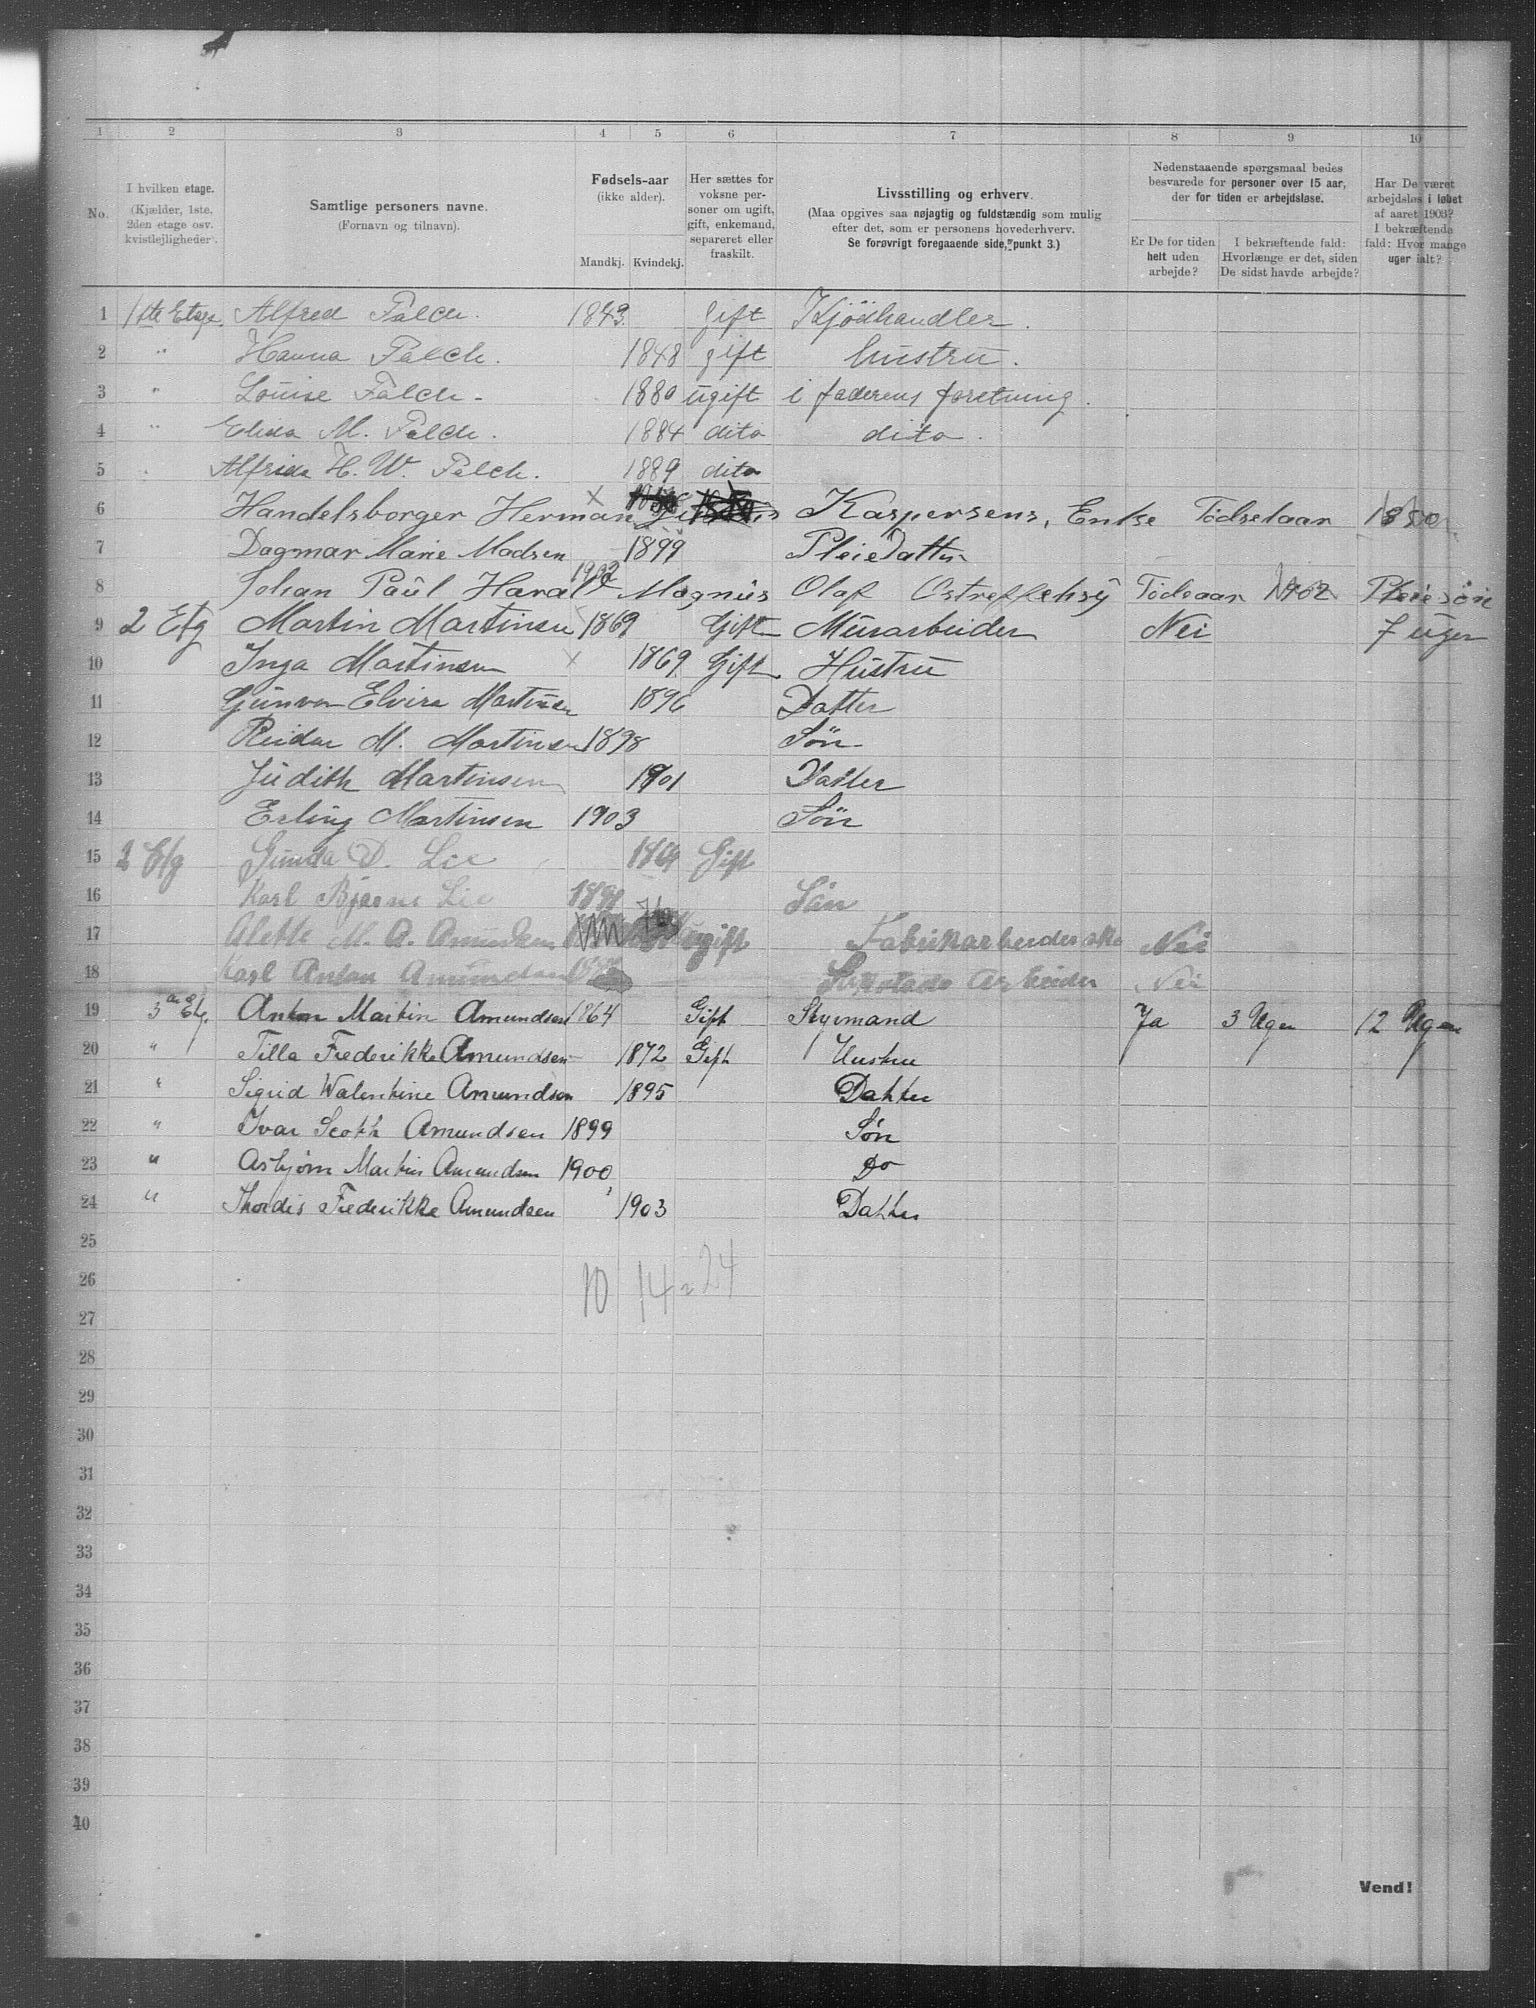 1 2 3 4 5 6 7 8 9 10
No.
I hvilken etage. (Kjælder, 1ste, 2den etage osv. kvistlejligheder.
Samtlige personers navne. (Fornavn og tilnavn).
Fødsels-aar (ikke alder). Mandkj. Kvindekj.
Her sættes for voksne personer om ugift, gift, enkemand, separeret eller fraskilt.
Livsstilling og erhverv. (Maa opgives saa nøjagtig og fuldstændig som mulig efter det, som er personens hovederhverv. Se forøvrigt foregaaende side, punkt 3.)
Nedenstaaende spørgsmaal bedes besvarede for personer over 15 aar, der for tiden er arbejdsløse.
Er De for tiden helt uden arbejde?
I bekræftende fald: Hvorlænge er det, siden De sidst havde arbejde?
Har De været arbejdsløs i løbet af aaret 1903? I bekræftende fald: Hvor mange uger ialt?
1 1ste Etage Alfred Falch. 1843 gift Kjödhandler.
2 " Hanna Falch. 1848 gift hustru.
3 " Louise Falch. 1880 ugift i faderens forretning.
4 " M. Falch. 1884 dito dito.
5 " Alfrida H. W. Falch. 1889 dito
6 Handelsborger Herman Kaspersens, Enke Födselaar 1850
7 Dagmar Marie Madsen 1899 PleieDatter
8 Johan Paul Harald 1902 Magnus Olaf Födeaar 1902 Pleiesön
9 2 Etg Martin Martinsen 1869 Gift Murarbeider Nei 7 uger
10 Inga Martinsen x 1869 Gift Hustru
11 Gunvor Elvira Martinsen 1896 Datter
12 Reidar M. Martinsen 1898 Sön
13 Judith Martinsen 1901 Datter
14 Erling Martinsen 1903 Sön
15 2 Etg Gunda D. Lie 1864 Gift
16 Karl Bjarne Lie 1891 Sön
17 Alette M. A. Amundsen ugift Fabrikarbeiderske Nei
18 Karl Anton Amundsen Arbeider Nei
19 3die Etg. Anton Martin Amundsen 1864 Gift Styrmand Ja 3 Uger 12 Uger
20 " Tilla Frederikke Amundsen 1872 Gift Hustru
21 " Sigrid Walentine Amundsen 1895 Datter
22 " Ivar Scott Amundsen 1899 Søn
23 " Asbjørn Martin Amundsen 1900 Do
24 " Thordis Frederikke Amundsen 1903 Datter
25
26 10 14 = 24
27
28
29
30
31
32
33
34
35
36
37
38
39
40
Vend!